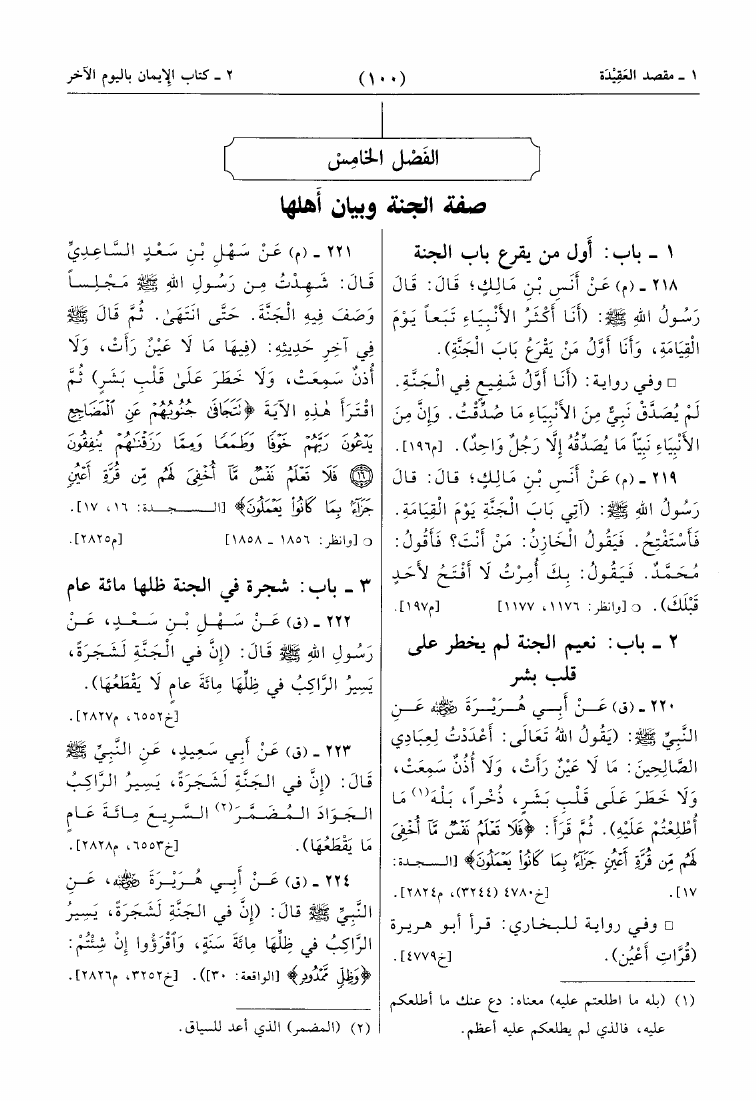 ١ ـ مقصد العَقِيْدَة
(١٠٠)
٢ ـ كتاب الإيمان باليوم الآخر
الفَصْل الخَامِسْ
صفة الجنة وبيان أهلها
١ ـ باب: أول من يقرع باب الجنة
٢١٨ ـ (م) عَنْ أَنَسِ بْنِ مَالِكٍ؛ قَالَ: قَالَ
رَسُولُ اللهِ ﷺ: (أَنَا أَكْثَرُ الأَنْبِيَاءِ تَبَعاً يَوْمَ
الْقِيَامَةِ، وَأَنَا أَوَّلُ مَنْ يَقْرَعُ بَابَ الْجَنَّةِ).
□ وفي رواية: (أَنَا أَوَّلُ شَفِيعٍ فِي الْجَنَّةِ.
لَمْ يُصَدَّقْ نَبِيٌّ مِنَ الأَنْبِيَاءِ مَا صُدِّقْتُ. وَإِنَّ مِنَ
الأَنْبِيَاءِ نَبِيّاً مَا يُصَدِّقُهُ إِلَّا رَجُلٌ وَاحِدٌ). [م١٩٦].
٢١٩ ـ (م) عَنْ أَنَسِ بْنِ مَالِكٍ؛ قَالَ: قَالَ
رَسُولُ اللهِ ﷺ: (آتِي بَابَ الْجَنَّةِ يَوْمَ الْقِيَامَةِ.
فَأَسْتَفْتِحُ. فَيَقُولُ الْخَازِنُ: مَنْ أَنْتَ؟ فَأَقُولُ:
مُحَمَّدٌ. فَيَقُولُ: بِكَ أُمِرْتُ لَا أَفْتَحُ لأَحَدٍ
قَبْلَكَ). ○ [وانظر: ١١٧٦، ١١٧٧] [م١٩٧].
٢ ـ باب: نعيم الجنة لم يخطر على
قلب بشر
٢٢٠ ـ (ق) عَنْ أَبِي هُرَيْرَةَ رضي الله عنه عَنِ
النَّبِيِّ ﷺ: (يَقُولُ اللهُ تَعَالَى: أَعْدَدْتُ لِعِبَادِي
الصَّالِحِينَ: مَا لَا عَيْنٌ رَأَتْ، وَلَا أُذُنٌ سَمِعَتْ،
وَلَا خَطَرَ عَلَى قَلْبِ بَشَرٍ، ذُخْراً، بَلْهَ(١) مَا
أُطْلِعْتُمْ عَلَيْهِ). ثُمَّ قَرَأَ: ﴿فَلَا تَعْلَمُ نَفْسٌ مَّا أُخْفِيَ
لَهُم مِّن قُرَّةِ أَعْيُنٍ جَزَاءً بِمَا كَانُوا يَعْمَلُونَ﴾ [السجدة:
١٧]. [خ٤٧٨٠ (٣٢٤٤)، م٢٨٢٤].
□ وفي رواية للبخاري: قرأ أبو هريرة
(قُرَّاتِ أَعْيُن). [خ٤٧٧٩].
(١) (بله ما اطلعتم عليه) معناه: دع عنك ما أطلعكم
عليه، فالذي لم يطلعكم عليه أعظم.
٢٢١ ـ (م) عَنْ سَهْلِ بْنِ سَعْدٍ السَّاعِدِيِّ
قَالَ: شَهِدْتُ مِن رَسُولِ اللهِ ﷺ مَجْلِساً
وَصَفَ فِيهِ الْجَنَّةَ. حَتَّى انْتَهَىٰ. ثُمَّ قَالَ ﷺ
فِي آخِرِ حَدِيثِهِ: (فِيهَا مَا لَا عَيْنٌ رَأَتْ، وَلَا
أُذنٌ سَمِعَتْ، وَلَا خَطَرَ عَلَىٰ قَلْبِ بَشَرٍ) ثُمَّ
اقْتَرَأَ هٰذِهِ الآيَةَ ﴿نَتَجَافَىٰ جُنُوبُهُمْ عَنِ الْمَضَاجِعِ
يَدْعُونَ رَبَّهُمْ خَوْفًا وَطَمَعًا وَمِمَّا رَزَقْنَاهُمْ يُنفِقُونَ
(١٦) فَلَا تَعْلَمُ نَفْسٌ مَّا أُخْفِيَ لَهُم مِّن قُرَّةِ أَعْيُنٍ
جَزَاءً بِمَا كَانُوا يَعْمَلُونَ﴾ [السجدة: ١٦، ١٧].
○ [وانظر: ١٨٥٦ ـ ١٨٥٨] [م٢٨٢٥].
٣ ـ باب: شجرة في الجنة ظلها مائة عام
٢٢٢ ـ (ق) عَنْ سَهْلِ بْنِ سَعْدٍ، عَنْ
رَسُولِ اللهِ ﷺ قَالَ: (إِنَّ في الْجَنَّةِ لَشَجَرَةً،
يَسِيرُ الرَّاكِبُ في ظِلِّهَا مِائَةَ عامٍ لَا يَقْطَعُهَا).
[خ٦٥٥٢، م٢٨٢٧].
٢٢٣ ـ (ق) عَنْ أَبي سَعِيدٍ، عَنِ النَّبِيِّ ﷺ
قَالَ: (إِنَّ في الْجَنَّةِ لَشَجَرَةً، يَسِيرُ الرَّاكِبُ
الجَوَادَ المُضَمَّرَ(٢) السَّرِيعَ مِائَةَ عَامٍ
مَا يَقْطَعُهَا). [خ٦٥٥٣، م٢٨٢٨].
٢٢٤ ـ (ق) عَنْ أَبِي هُرَيْرَةَ رضي الله عنه، عَنِ
النَّبِيِّ ﷺ قالَ: (إِنَّ في الْجَنَّةِ لَشَجَرَةً، يَسِيرُ
الرَّاكِبُ في ظِلِّهَا مِائَةَ سَنَةٍ، وَاقْرَؤُوا إِنْ شِئْتُمْ:
﴿وَظِلٍّ مَّمْدُودٍ﴾ [الواقعة: ٣٠]). [خ٣٢٥٢، م٢٨٢٦].
(٢) (المضمر) الذي أعد للسياق.